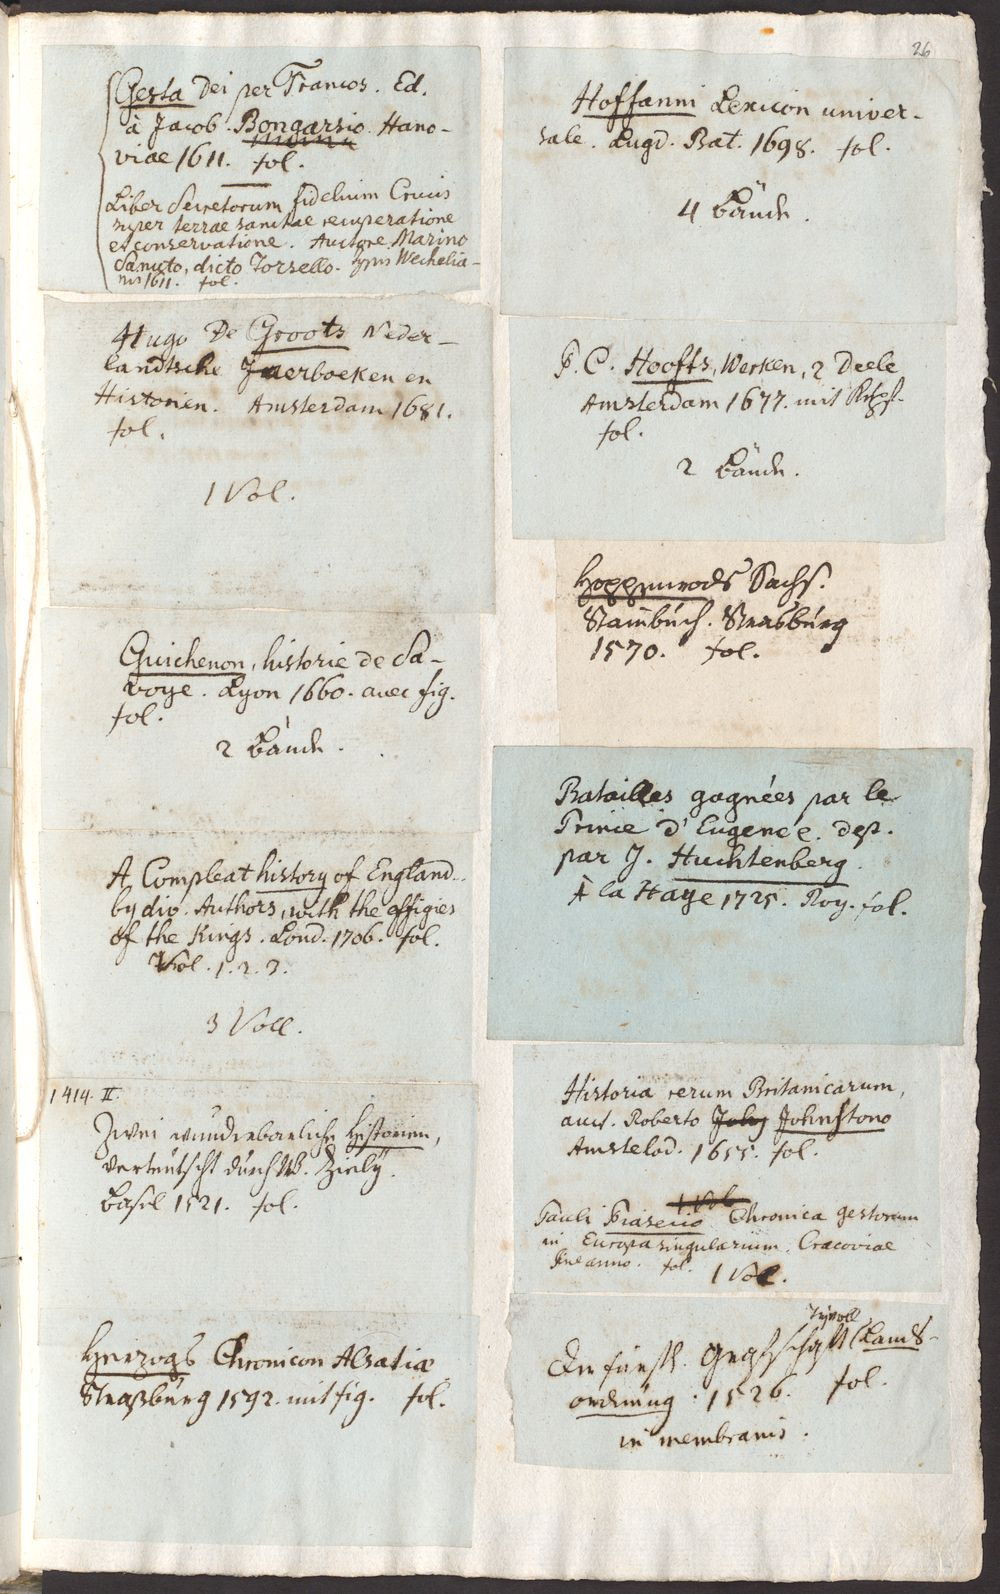 26
Gesta Dei per Francos. Ed.
à Jacob. Bongarsio. Hano-
viae 1611. fol.
Liber Secretorum fidelium Crucis
super terrae sanctae recuperatione
et conservatione. Auctore Marino
Sanuto, dicto Torsello. typis Wechelia-
nis 1611. fol.
Hugo De Groots Neder-
landtsche Jaerboeken en
Historien. Amsterdam 1681.
fol.
1 Vol.
Guichenon, historie de Sa-
voye. Lyon 1660. avec fig.
fol.
2 Bände.
A Compleat history of England
by div. Authors, with the effigies
of the Kings. Lond. 1706. fol.
Vol. 1. 2. 3.
3 Voll.
1414. II.
Zwei wunderbarliche Historien,
verteutscht durch W. Ziely.
Basel 1521. fol.
Herzogs Chronicon Alsatiae
Straßburg 1592. mit fig. fol.
Hoffanni Lexicon univer-
sale. Lugd. Bat. 1698. fol.
4 Bände.
P. C. Hoofts, Werken, 2 Deele
Amsterdam 1677. mit Kupf.
fol.
2 Bände.
Hoppenrods Sächs.
Stambuch. Strasburg
1570. fol.
Batailles gagnées par le
Prince d'Eugenée. dep.
par J. Huchtenberg.
À la Haye 1725. Roy. fol.
Historia rerum Britanicarum,
auct. Roberto Johnstono
Amstelod. 1655. fol.
1 Vol.
Pauli Piasecio Chronica gestorum
in Europa singularium. Cracoviae
sine anno. fol.
1 Vol.
Tyroll
Der fürstl. Grafschafft Lands-
ordnung. 1526. fol.
in membranis.